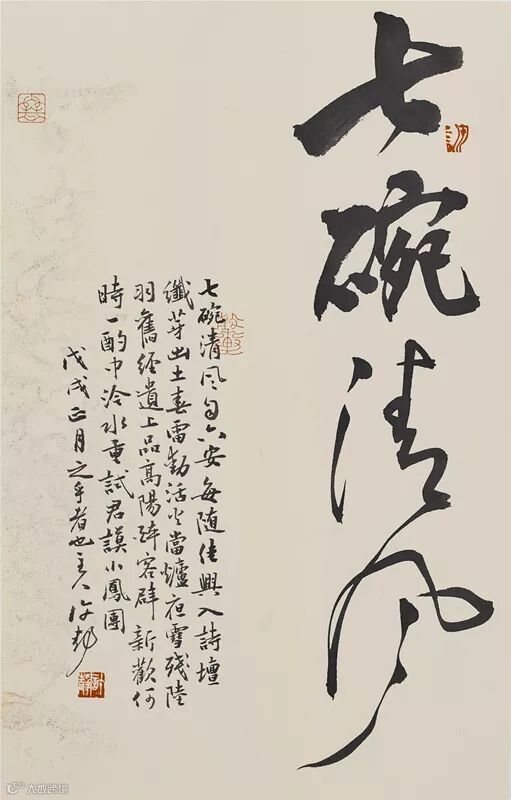 七碗清风
七碗清风自六安每随佳興入詩壇
纖芽出土春雷動活火當爐夜雪残陸
羽舊經遺上品高陽醉客辟新歡何
時一酌中泠水重試君謨小鳳團
戊戌正月之乎者也主人许
大数跨境